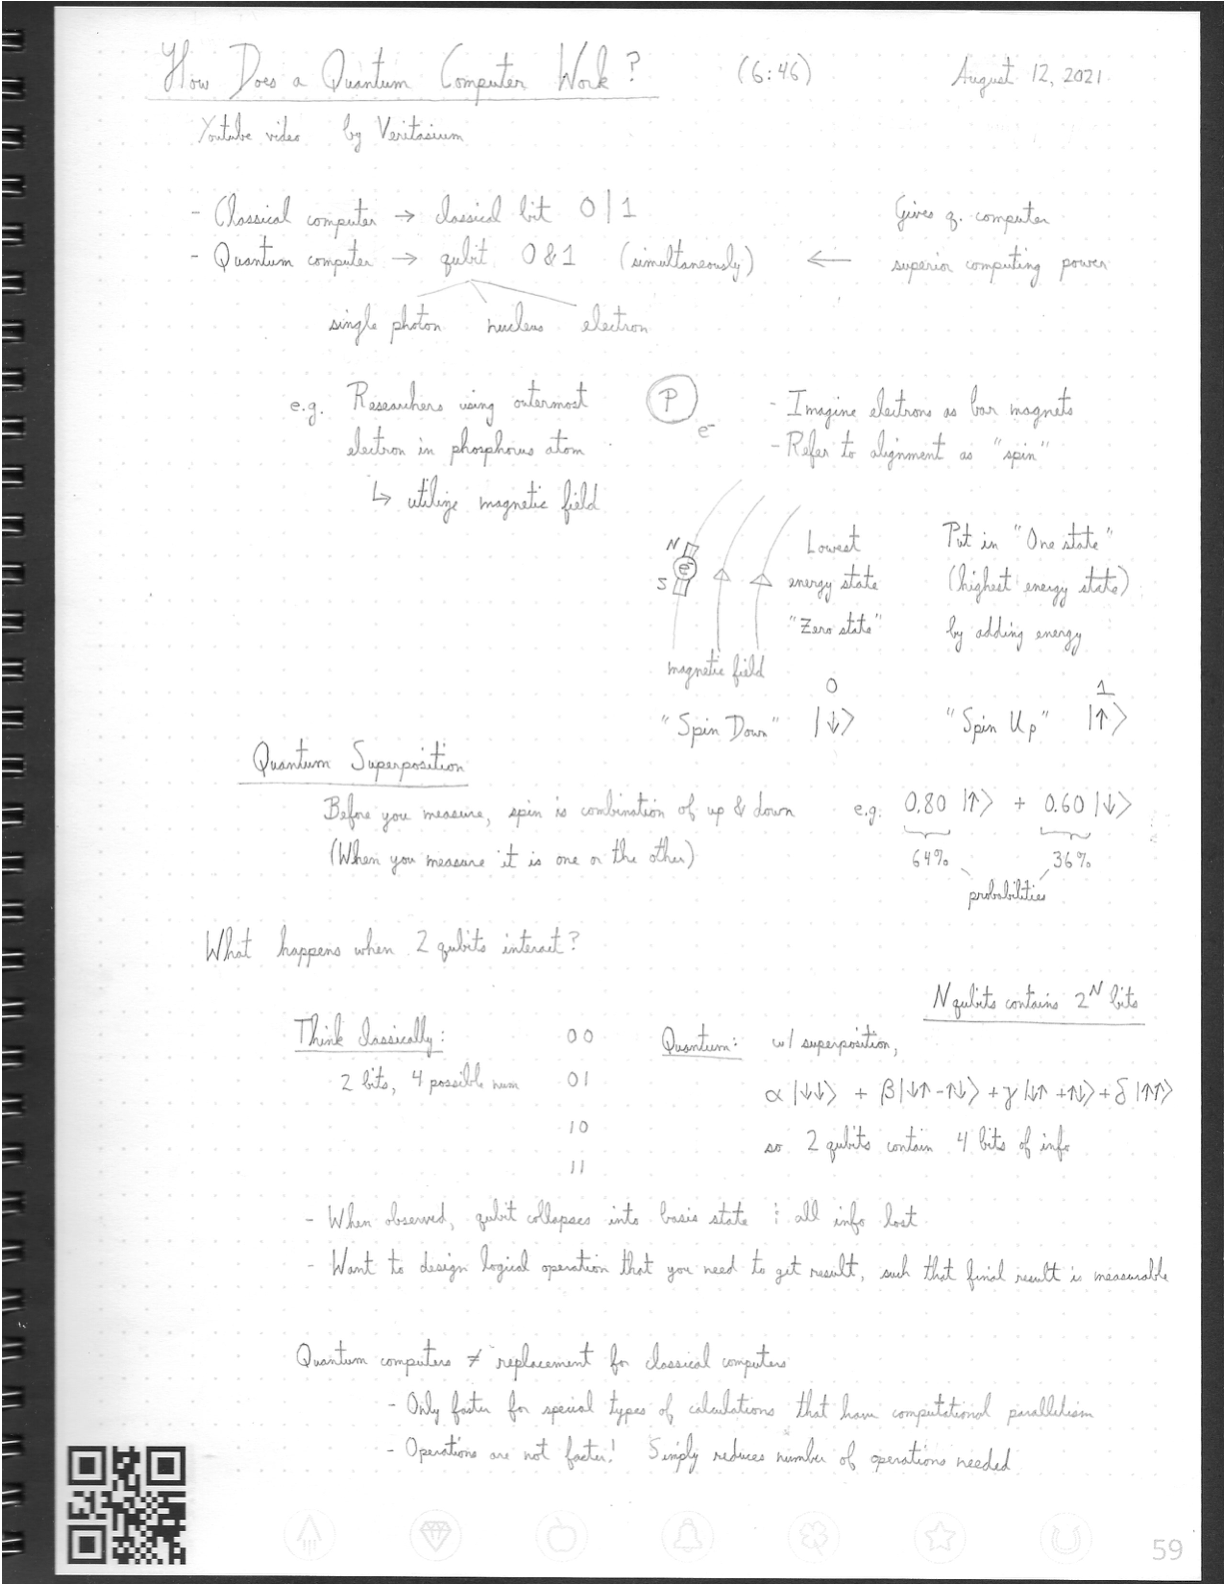 How Does a Quantum Computer Work? (6:46) August 12, 2021
Youtube video by Veritasium
- Classical computer → classical bit 0|1
- Quantum computer → qubit 0&1 (simultaneously) ←
Gives q. computer
superior computing power
single photon nucleus electron
e.g. Researchers using outermost
electron in phosphorus atom
↳ utilize magnetic field
P
e⁻
- Imagine electrons as bar magnets
- Refer to alignment as "spin"
N
e⁻
S
magnetic field
Lowest
energy state
"Zero state"
Put in "One state"
(highest energy state)
by adding energy
0
"Spin Down" |↓⟩
1
"Spin Up" |↑⟩
Quantum Superposition
Before you measure, spin is combination of up & down
(When you measure it is one or the other)
e.g. 0.80 |↑⟩ + 0.60 |↓⟩
64% 36%
probabilities
What happens when 2 qubits interact?
N qubits contains 2ᴺ bits
Think classically:
2 bits, 4 possible num
00
01
10
11
Quantum: w/ superposition,
α|↓↓⟩ + β|↓↑-↑↓⟩ + γ|↓↑+↑↓⟩ + δ|↑↑⟩
so 2 qubits contain 4 bits of info
- When observed, qubit collapses into basis state ; all info lost
- Want to design logical operation that you need to get result, such that final result is measurable
Quantum computers ≠ replacement for classical computers
- Only faster for special types of calculations that have computational parallelism
- Operations are not faster! Simply reduces number of operations needed
59